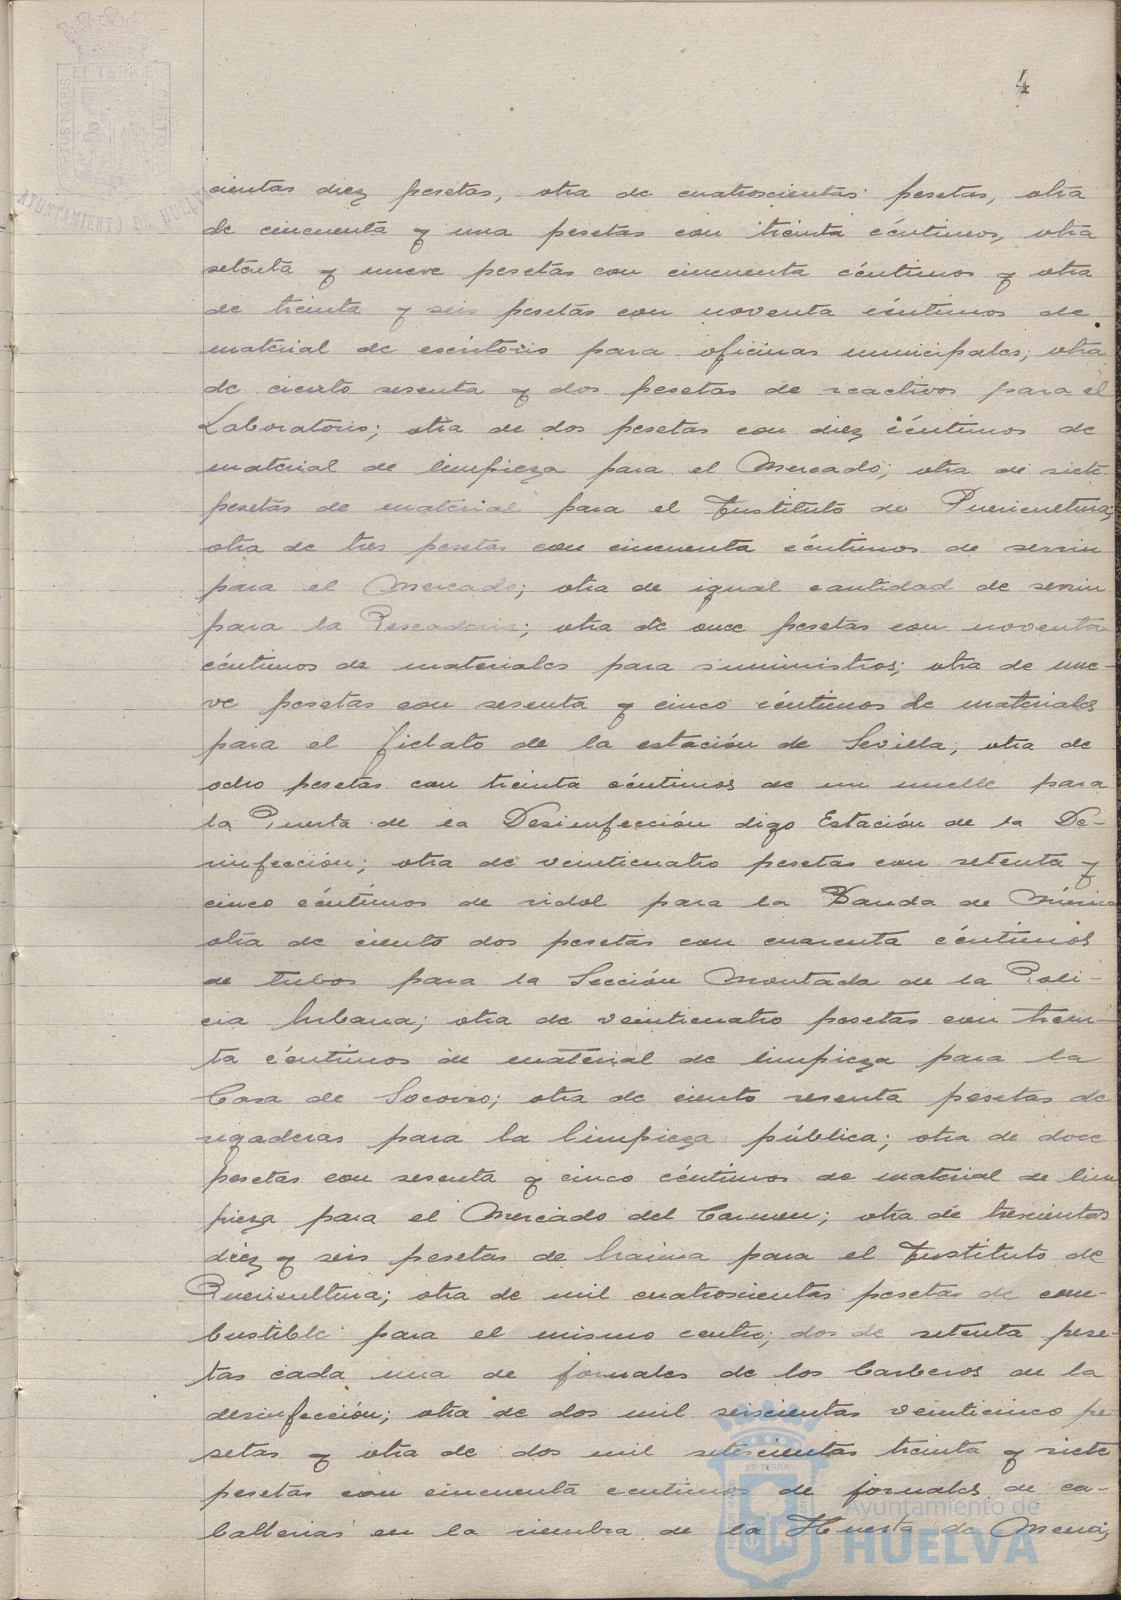 4
PORTUS MARIS
ET TERRÆ
CUSTODIA
AYUNTAMIENTO DE HUELVA
cientas diez pesetas, otra de cuatroscientas pesetas, otra
de cincuenta y una pesetas con treinta céntimos, otra
setenta y nueve pesetas con cincuenta céntimos y otra
de treinta y seis pesetas con noventa céntimos de
material de escritorio para oficinas municipales; otra
de ciento sesenta y dos pesetas de reactivos para el
Laboratorio; otra de dos pesetas con diez céntimos de
material de limpieza para el Mercado; otra de siete
pesetas de material para el Instituto de Puericultura;
otra de tres pesetas con cincuenta céntimos de serrin
para el Mercado; otra de igual cantidad de serrin
para la Pescaderia; otra de once pesetas con noventa
céntimos de materiales para suministros; otra de nue-
ve pesetas con sesenta y cinco céntimos de materiales
para el fielato de la estación de Sevilla; otra de
ocho pesetas con treinta céntimos de un muelle para
la Puerta de la Desinfección digo Estación de la De-
sinfección; otra de veinticuatro pesetas con setenta y
cinco céntimos de sidol para la Banda de Música
otra de ciento dos pesetas con cuarenta céntimos
de tubos para la Sección Montada de la Poli-
cia Urbana; otra de veinticuatro pesetas con trein-
ta céntimos de material de limpieza para la
Casa de Socorro; otra de ciento sesenta pesetas de
regaderas para la limpieza pública; otra de doce
pesetas con sesenta y cinco céntimos de material de lim
pieza para el Mercado del Carmen; otra de trescientas
diez y seis pesetas de harina para el Instituto de
Puericultura; otra de mil cuatroscientas pesetas de com-
bustible para el mismo centro; dos de setenta pese-
tas cada una de jornales de los barberos de la
desinfección; otra de dos mil seiscientas veinticinco pe
setas y otra de dos mil setecientas treinta y siete
pesetas con cincuenta centimos de jornales de ca-
ballerias en la siembra de la Huerta de Mena;
Ayuntamiento de
HUELVA